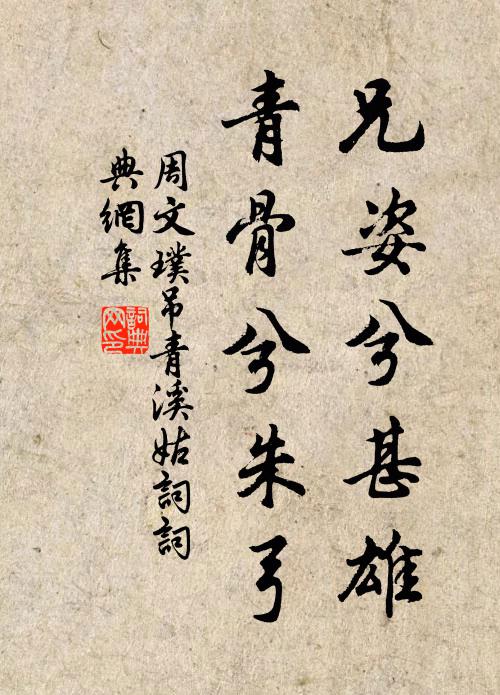 兄姿兮甚雄
青骨兮朱弓
周文璞吊青溪姑詞詞
典網集
詞典
网印